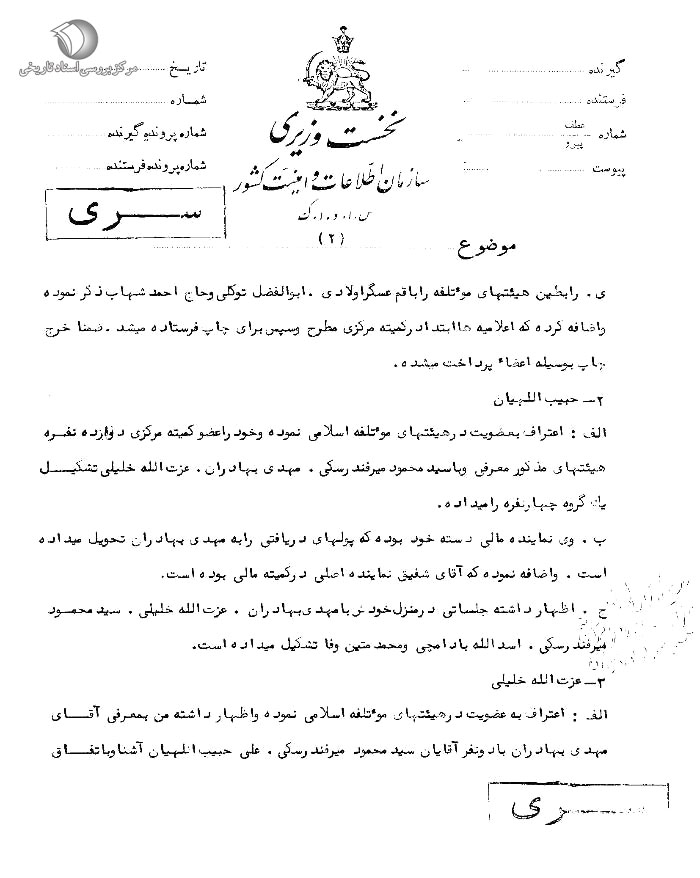 مرکز بررسی اسناد تاریخی
گیرنده
فرستنده
شماره
عطف
پیرو
پیوست
نخست وزیری
سازمان اطلاعات و امنیت کشور
س.ا.و.ا.ک
(۲)
تاریخ
شماره
شماره پرونده گیرنده
شماره پرونده فرستنده
سری
موضوع
ی . رابطین هیئتهای موتلفه را باقم عسگراولادی . ابوالفضل توکلی وحاج احمد شهاب ذکر نموده
واضافه کرده که اعلامیه ها ابتدا درکمیته مرکزی مطرح وسپس برای چاپ فرستاده میشد . ضمنا خرج
چاپ بوسیله اعضاء پرداخت میشده .
۲ـ حبیب اللهیان
الف : اعتراف بعضویت درهیئتهای موتلفه اسلامی نموده وخود راعضو کمیته مرکزی دوازده نفره
هیئتهای مذکور معرفی وباسید محمود میرفندرسکی . مهدی بهادران . عزت الله خلیلی تشکیل
یک گروه چهارنفره رامیداده .
ب . وی نماینده مالی دسته خود بوده که پولهای دریافتی رابه مهدی بهادران تحویل میداده
است . واضافه نموده که آقای شفیق نماینده اصلی درکمیته مالی بوده است.
ج . اظهار داشته جلساتی درمنزل خود نر با مهدی بهادران . عزت الله خلیلی . سید محمود
میرفندرسکی . اسدالله بادامچی ومحمد متین وفا تشکیل میداده است.
۳ـ عزت الله خلیلی
الف : اعتراف به عضویت درهیئتهای موتلفه اسلامی نموده واظهار داشته من بمعرفی آقای
مهدی بهادران بادونفر آقایان سید محمود میرفندرسکی . علی حبیب اللهیان آشنا وباتفاق
سری